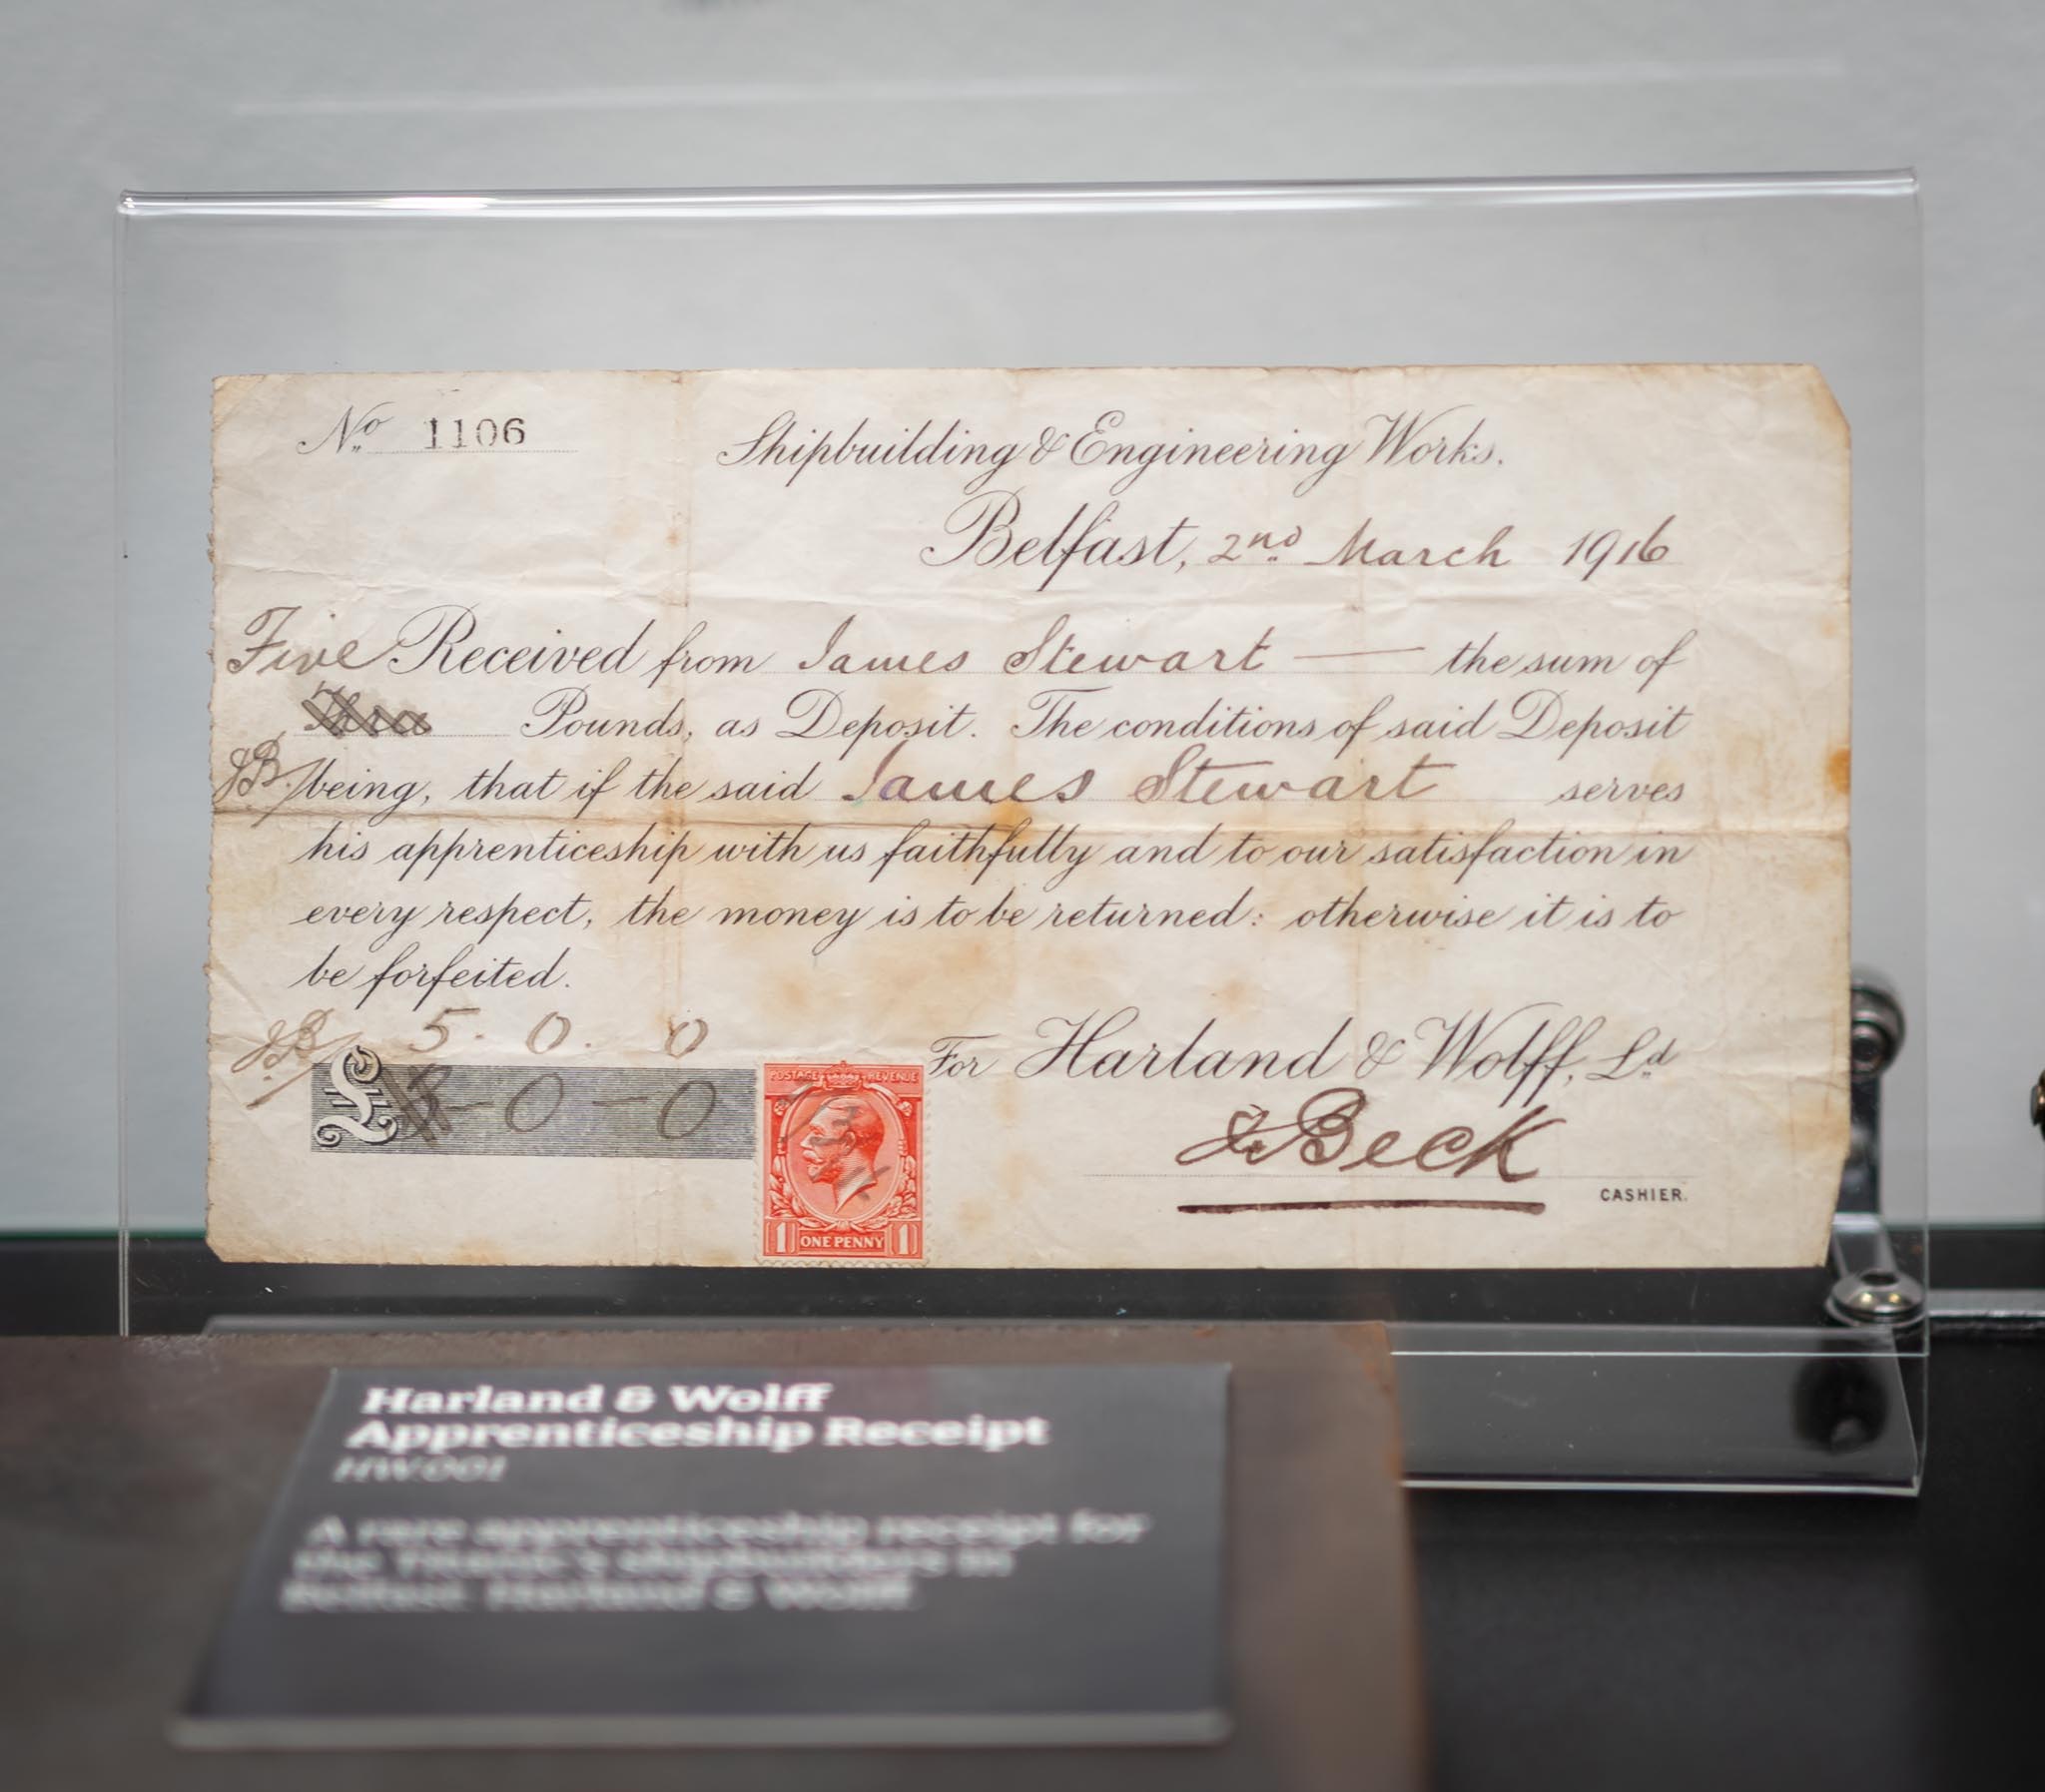 No 1106
Shipbuilding & Engineering Works.
Belfast, 2nd March 1916
Five Received from James Stewart — the sum of
Three Pounds, as Deposit. The conditions of said Deposit
JB being, that if the said James Stewart serves
his apprenticeship with us faithfully and to our satisfaction in
every respect, the money is to be returned: otherwise it is to
be forfeited.
JB 5. 0. 0
£ 3 - 0 - 0
POSTAGE REVENUE
1 ONE PENNY 1
For Harland & Wolff, Ld
J Beck
CASHIER.
Harland & Wolff
Apprenticeship Receipt
HW.001
A rare apprenticeship receipt for
the Titanic's shipbuilders in
Belfast, Harland & Wolff